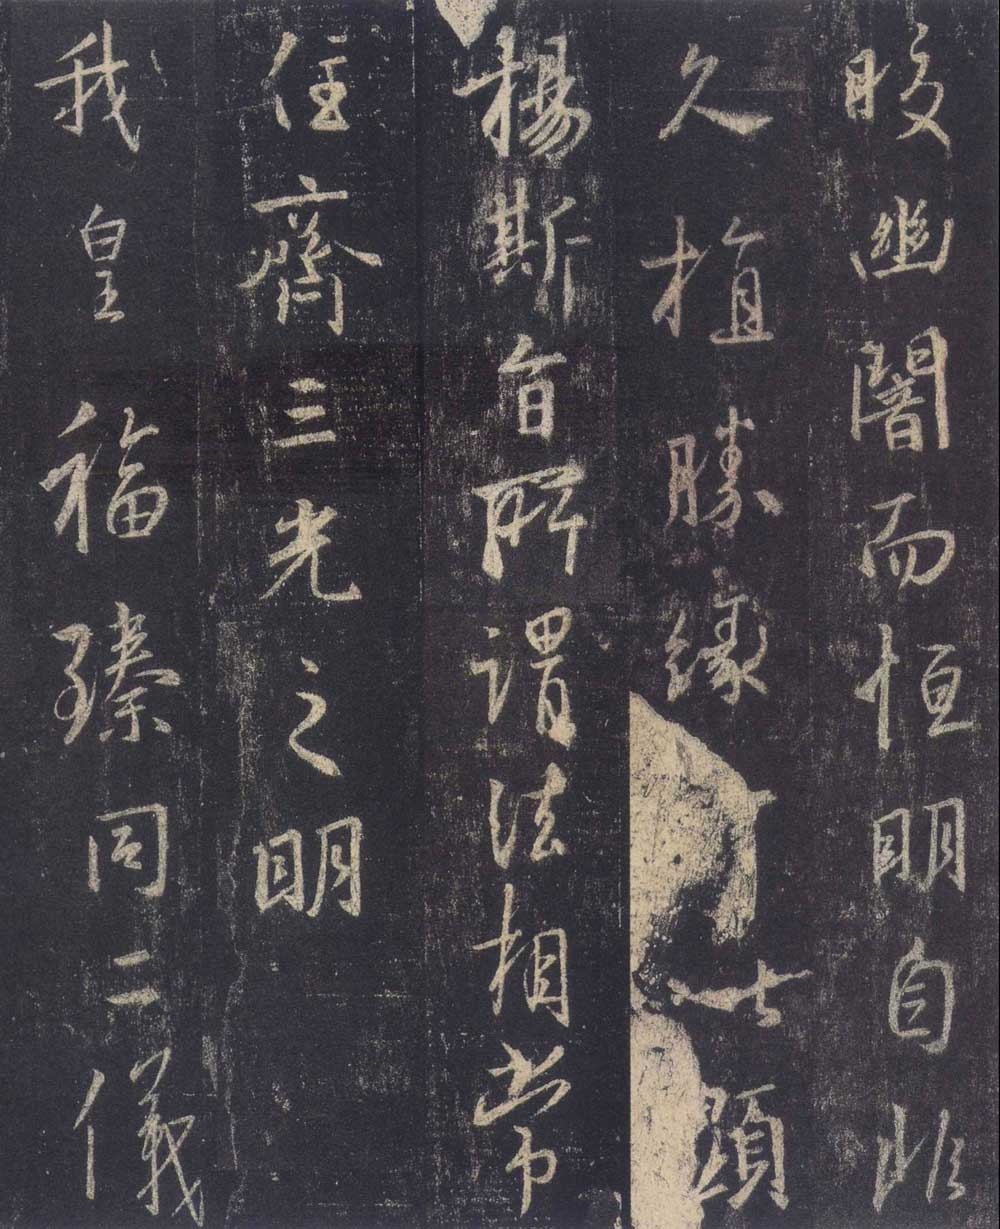 晈幽闇而恒明自非
久植勝緣以顕
揚斯旨所謂法相常
住齊三光之明
我皇福臻同二儀